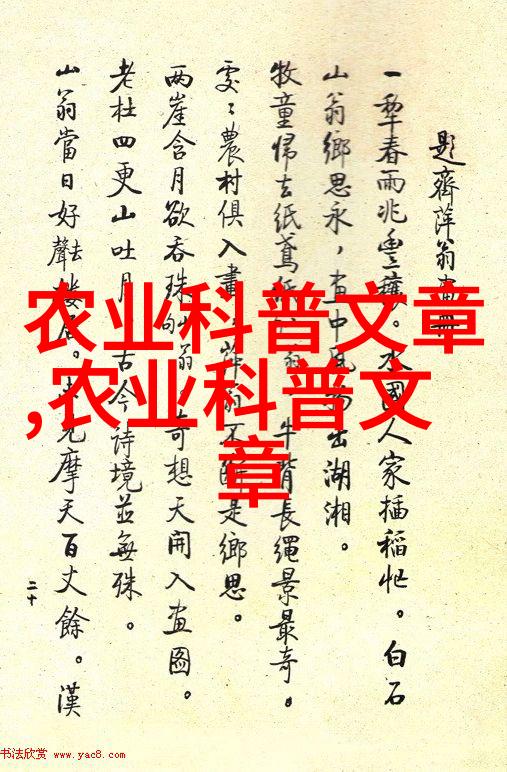 题齊萍翁畫冊
一犂春雨兆豐穰。水國人家插稻忙。白石
山翁鄉思永，畫中風物出湖湘。
牧童歸去紙鳶 牛背長繩景最奇。
處〻農村俱入畫 萍翁不 是鄉思。
兩崖含月欲吞珠 翁奇想天開入畫圖。
老杜四更山吐月 古今詩境並無殊。
山翁當日好聲去樓居。 摩天百丈餘。漢
二十
农业科普文章
,农业科普文
章
书法欣赏 www.yac8.com